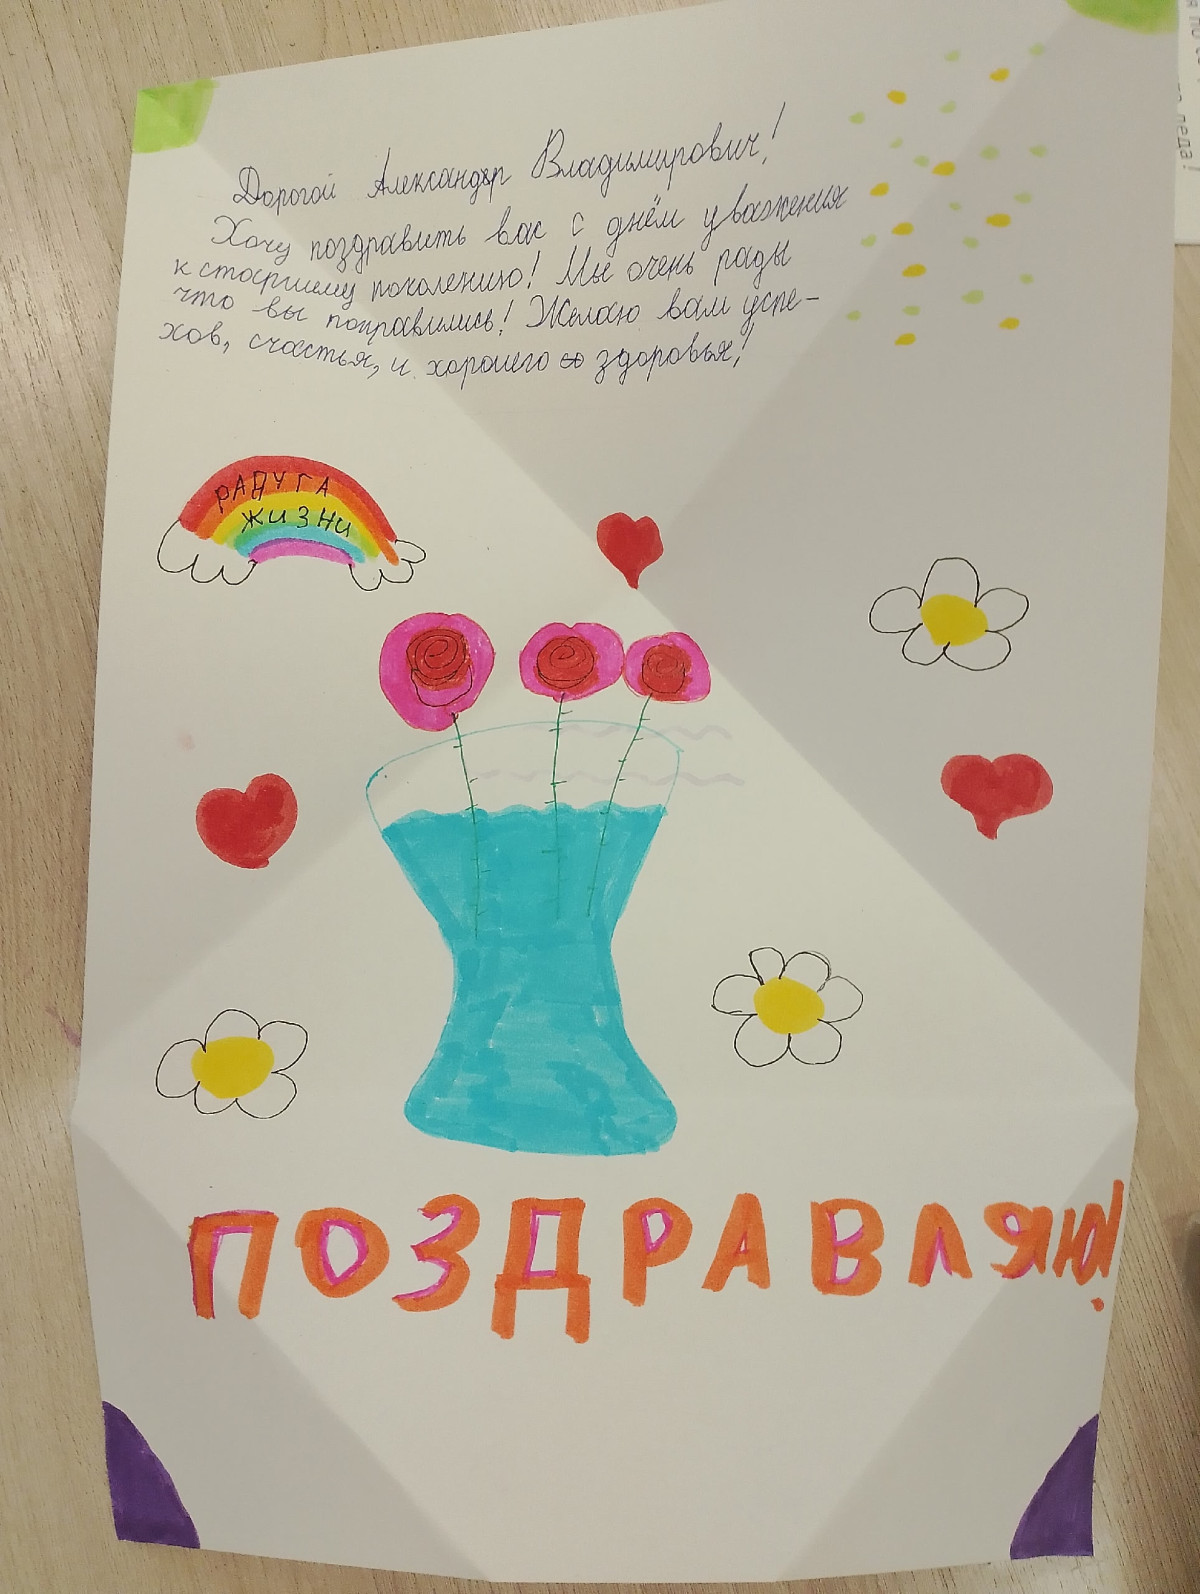 Дорогой Александр Владимирович!
Хочу поздравить вас с днём уважения
к старшему поколению! Мы очень рады
что вы поправились! Желаю вам успе-
хов, счастья, и хорошего здоровья!
РАДУГА
ЖИЗНИ
ПОЗДРАВЛЯЮ!